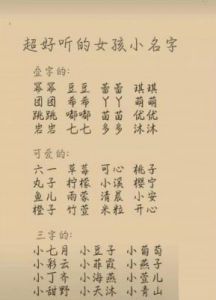 超好听的女孩小名字
叠字的:
幂幂 豆豆 蕾蕾 琪琪
团团 希希 丫丫 萌萌
跳跳 嘟嘟 苗苗 优优
岩岩 七七 多多 沐沐
可爱的:
六一 草莓 可心 桃子
丸子 柠檬 小溪 柠安
鱼儿 雨蒙 小晨
橙子 竹萱 米粒 开心
三字的:
小七月 小豆子 小葡萄
小彩云 小菲霞 小燕子
小丁香 小海燕 小萱儿
小甜野 小天沐 小青山